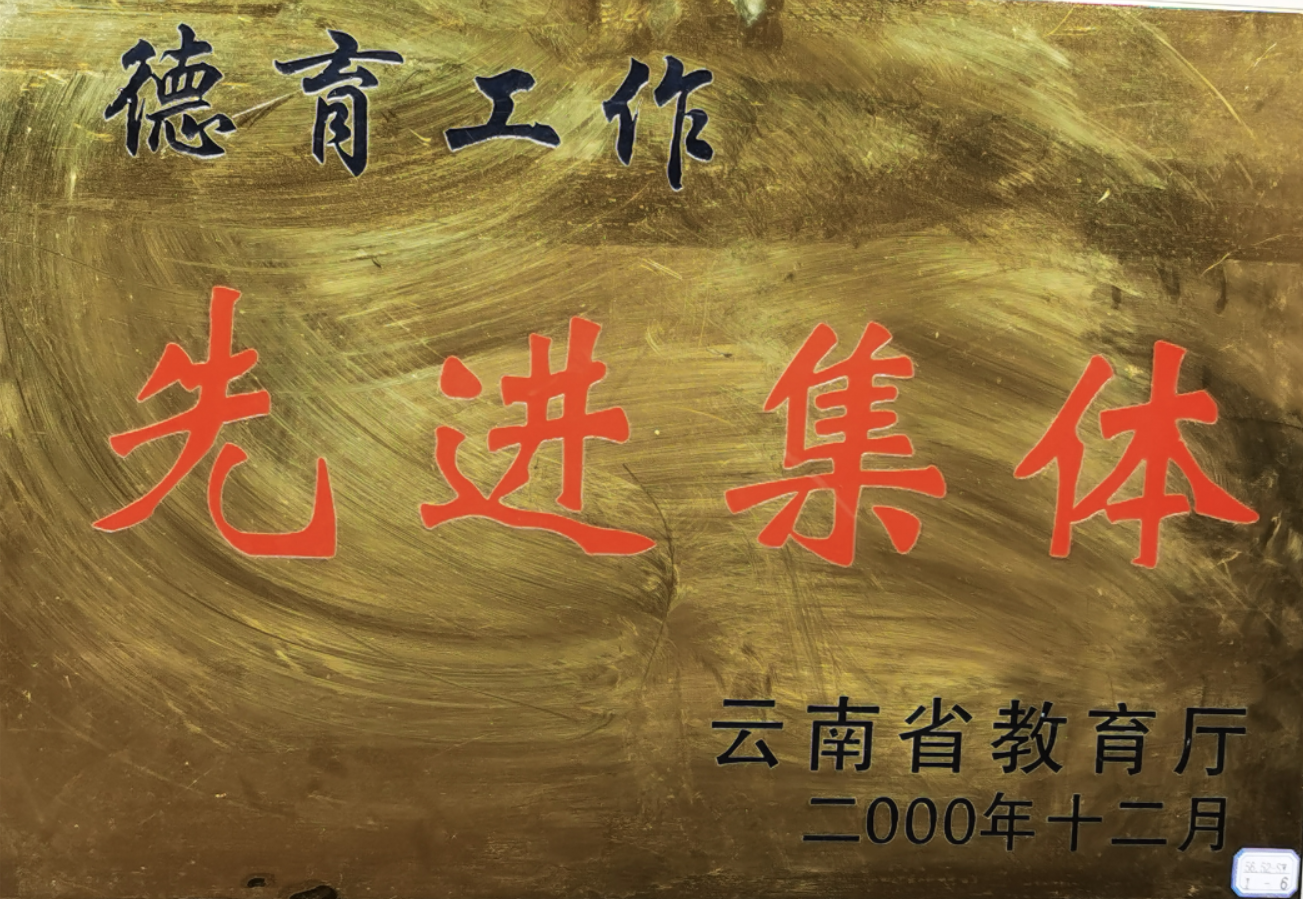 德育工作
先进集体
云南省教育厅
二000年十二月
1-6